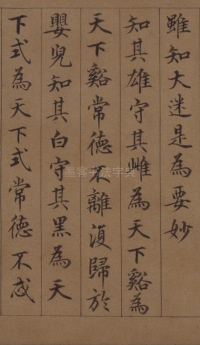 雖知大迷是為要妙
知其雄守其雌為天下谿為
天下谿常徳不離復歸於
嬰兒知其白守其黑為天
下式為天下式常徳不忒